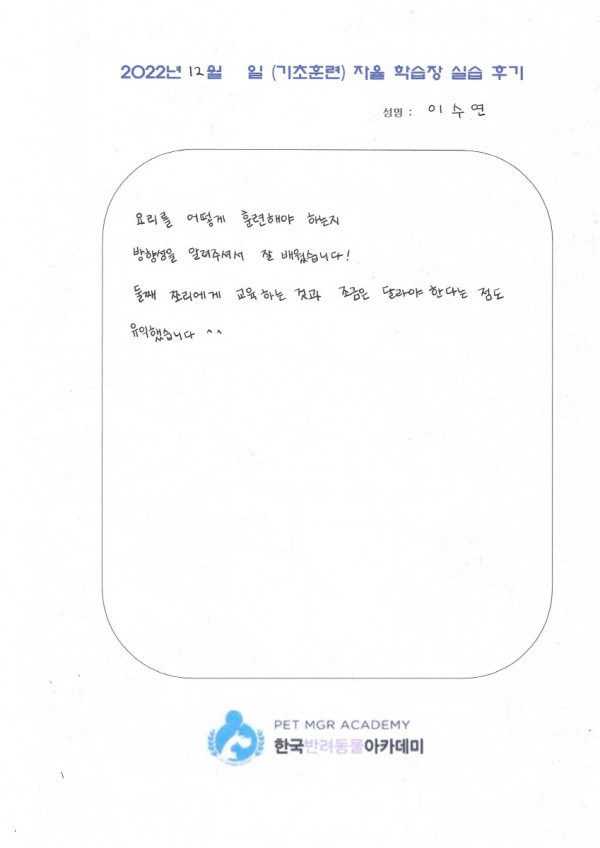 2022년 12월 일 (기초훈련) 자율 학습장 실습 후기
성명 : 이수연
요리를 어떻게 훈련해야 하는지
방향성을 알려주셔서 잘 배웠습니다!
둘째 쪼리에게 교육하는 것과 조금은 달라야 한다는 점도
유익했습니다 ^^
PET MGR ACADEMY
한국반려동물아카데미